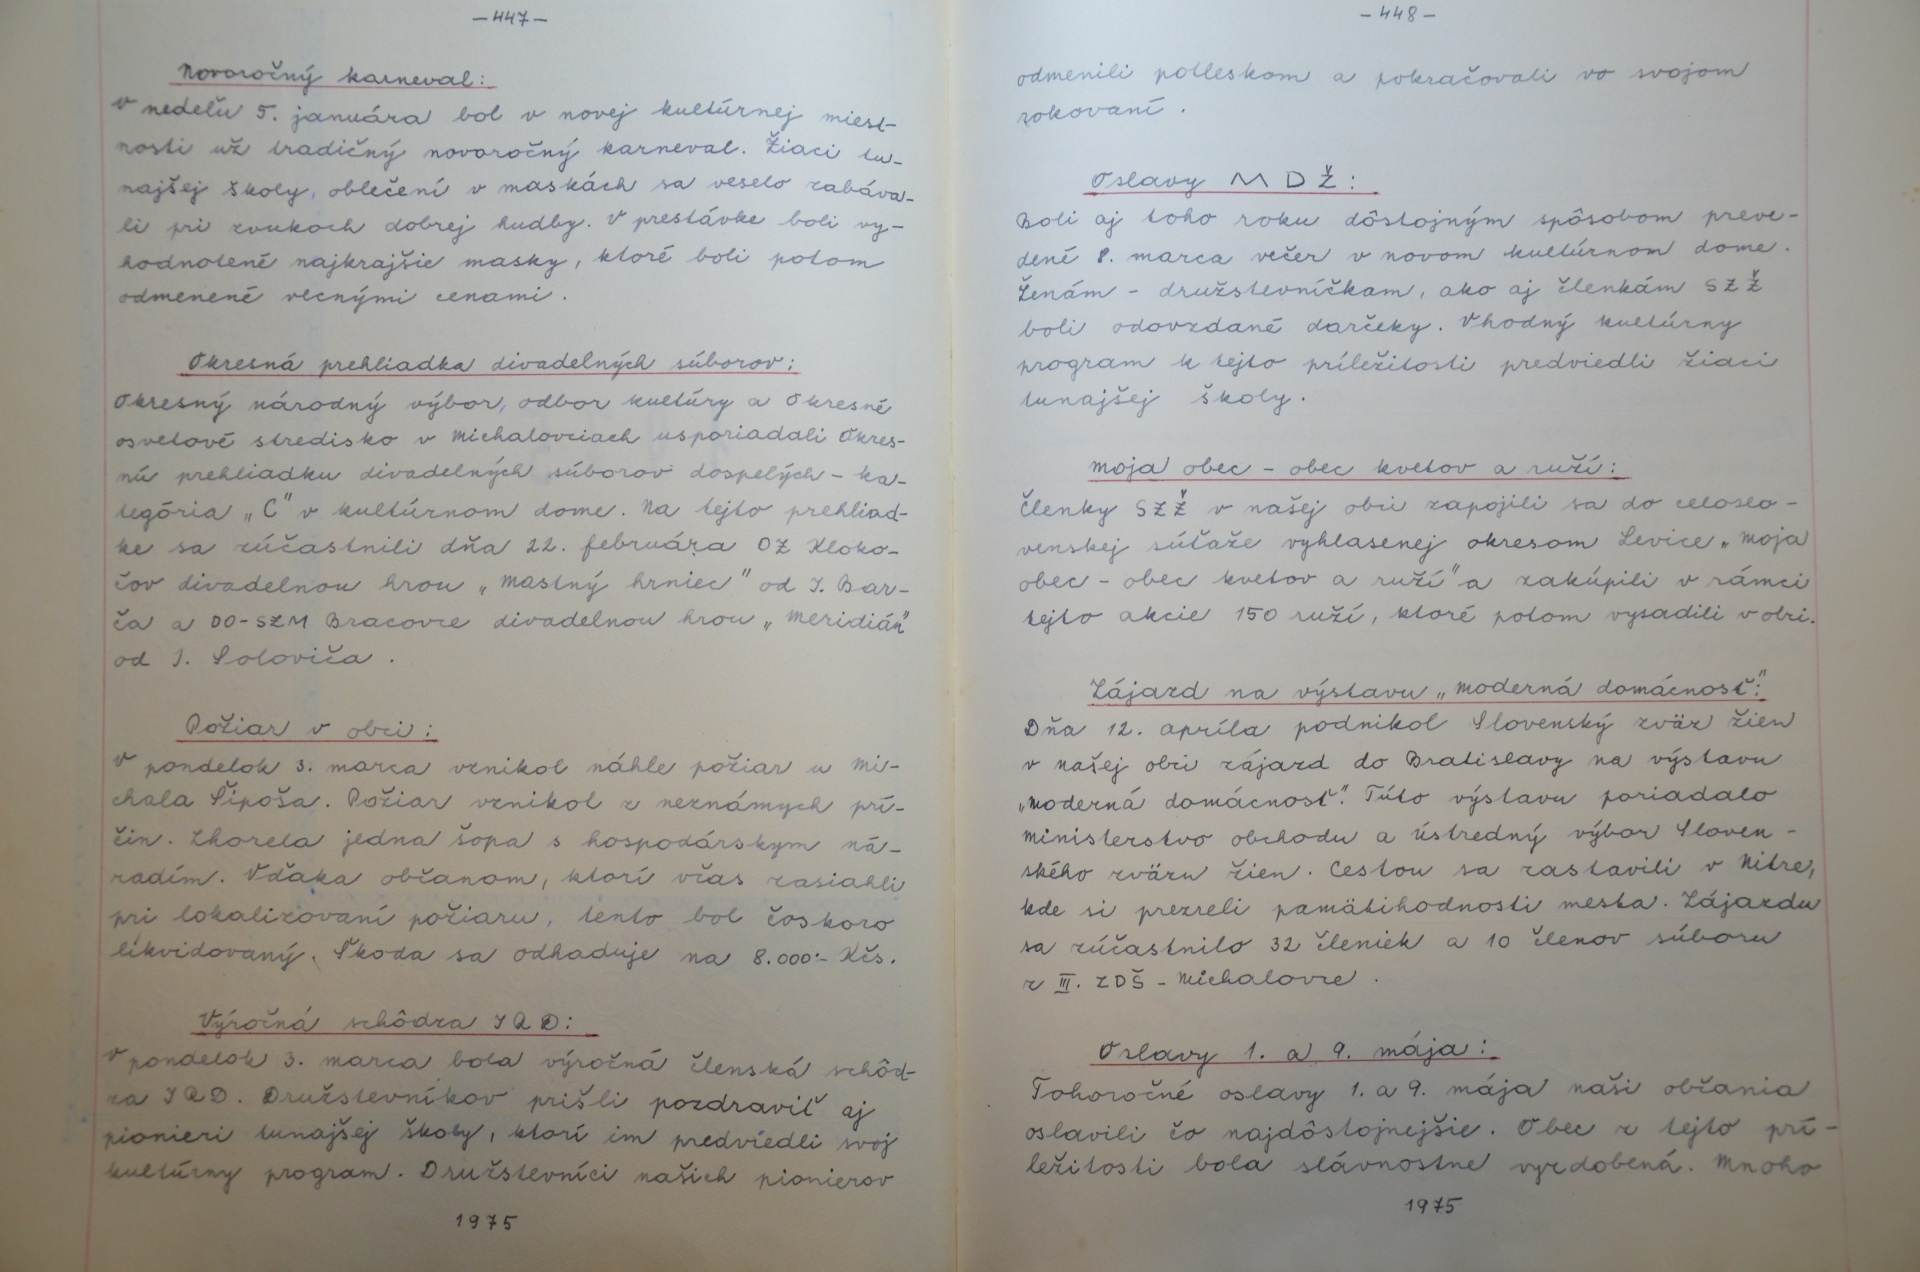 -447-
Novoročný karneval:
V nedeľu 5. januára bol v novej kultúrnej miest-
nosti už tradičný novoročný karneval. Žiaci tu-
najšej školy, oblečení v maskách sa veselo zabáva-
li pri zvukoch dobrej hudby. V prestávke boli vy-
hodnotené najkrajšie masky, ktoré boli potom
odmenené vecnými cenami.
Okresná prehliadka divadelných súborov:
Okresný národný výbor, odbor kultúry a Okresné
osvetové stredisko v Michalovciach usporiadali Okres-
nú prehliadku divadelných súborov dospelých - ka-
tegória „C" v kultúrnom dome. Na tejto prehliad-
ke sa zúčastnili dňa 22. februára OZ Kloko-
čov divadelnou hrou „Mastný hrniec" od J. Bar-
ča a DO-SZM Bracovce divadelnou hrou „Meridián"
od J. Soloviča.
Požiar v obci:
V pondelok 3. marca vznikol náhle požiar u Mi-
chala Šipoša. Požiar vznikol z neznámych prí-
čin. Zhorela jedna šopa s hospodárskym ná-
radím. Vďaka občanom, ktorí včas zasiahli
pri lokalizovaní požiaru, tento bol čoskoro
likvidovaný. Škoda sa odhaduje na 8.000:- Kčs.
Výročná schôdza JRD:
V pondelok 3. marca bola výročná členská schôd-
za JRD. Družstevníkov prišli pozdraviť aj
pionieri tunajšej školy, ktorí im predviedli svoj
kultúrny program. Družstevníci našich pionierov
1975
-448-
odmenili potleskom a pokračovali vo svojom
rokovaní.
Oslavy MDŽ:
Boli aj toho roku dôstojným spôsobom preve-
dené 8. marca večer v novom kultúrnom dome.
Ženám - družstevníčkam, ako aj členkám SZŽ
boli odovzdané darčeky. Vhodný kultúrny
program k tejto príležitosti predviedli žiaci
tunajšej školy.
Moja obec - obec kvetov a ruží:
Členky SZŽ v našej obci zapojili sa do celoslo-
venskej súťaže vyhlasenej okresom Levice „Moja
obec - obec kvetov a ruží" a zakúpili v rámci
tejto akcie 150 ruží, ktoré potom vysadili v obci.
Zájazd na výstavu „Moderná domácnosť":
Dňa 12. apríla podnikol Slovenský zväz žien
v našej obci zájazd do Bratislavy na výstavu
„Moderná domácnosť". Túto výstavu poriadalo
Ministerstvo obchodu a Ústredný výbor Sloven-
ského zväzu žien. Cestou sa zastavili v Nitre,
kde si prezreli pamätihodnosti mesta. Zájazdu
sa zúčastnilo 32 členiek a 10 členov súboru
z III. ZDŠ - Michalovce.
Oslavy 1. a 9. mája:
Tohoročné oslavy 1. a 9. mája naši občania
oslavili čo najdôstojnejšie. Obec z tejto prí-
ležitosti bola slávnostne vyzdobená. Mnoho
1975